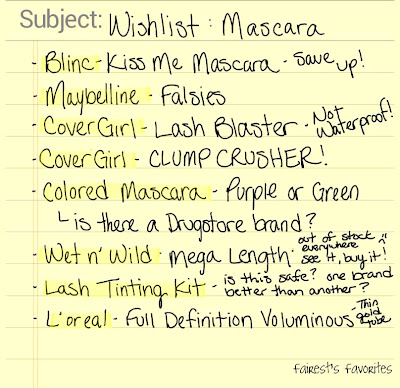 Subject: Wishlist: Mascara
- Blinc - Kiss Me Mascara - Save up!
- Maybelline - Falsies
- CoverGirl - Lash Blaster - Not Waterproof!
- CoverGirl - CLUMP CRUSHER!
- Colored Mascara - Purple or Green
└ is there a Drugstore brand?
- Wet n' Wild - Mega Length - out of stock everywhere :( see it, buy it!
- Lash Tinting Kit - is this safe? one brand better than another?
- L'oreal - Full Definition Voluminous - Thin gold tube
fairest's favorites